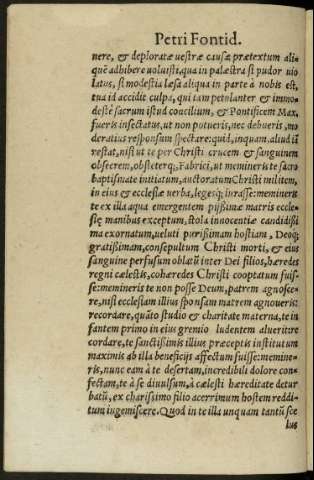 Petri Fontid.
nere, & deploratæ uestræ causæ prætextum ali-
quē adhibere uoluisti, qua in palæstra si pudor uio
latus, si modestia læsa aliqua in parte à nobis est,
tua id accidit culpa, qui tam petulanter & immo-
destè sacrum istud concilium, & Pontificem Max.
fueris insectatus, ut non potueris, nec debueris, mo
deratius responsum spectare: quid, inquam, aliud iā
restat, nisi ut te per Christi crucem & sanguinem
obsecrem, obstesterq́; Fabrici, ut memineris te sacro
baptismate initiatum, auctoratum Christi militem,
in eius & ecclesiæ uerba, legesq́; iurasse: memineris
te ex illa aqua emergentem pijssimæ matris eccle-
siæ manibus exceptum, stola innocentiæ candidissi
ma exornatum, ueluti purissimam hostiam, Deoq́;
gratissimam, consepultum Christi morti, & eius
sanguine perfusum oblatū inter Dei filios, hæredes
regni cælestis, cohæredes Christi cooptatum fuis-
se: memineris te non posse Deum, patrem agnosce-
re, nisi ecclesiam illius sponsam matrem agnoueris:
recordare, quāto studio & charitate materna, te in
fantem primo in eius gremio ludentem aluerit: re
cordare, te sanctissimis illius præceptis institutum
maximis ab illa beneficijs affectum fuisse: memine-
ris, nunc eam à te desertam, incredibili dolore con-
fectam, te à se diuulsum, à cælesti hæreditate detur
batū, ex charissimo filio acerrimum hostem reddi-
tum ingemiscere. Quod in te illa unquam tantū sce
lus